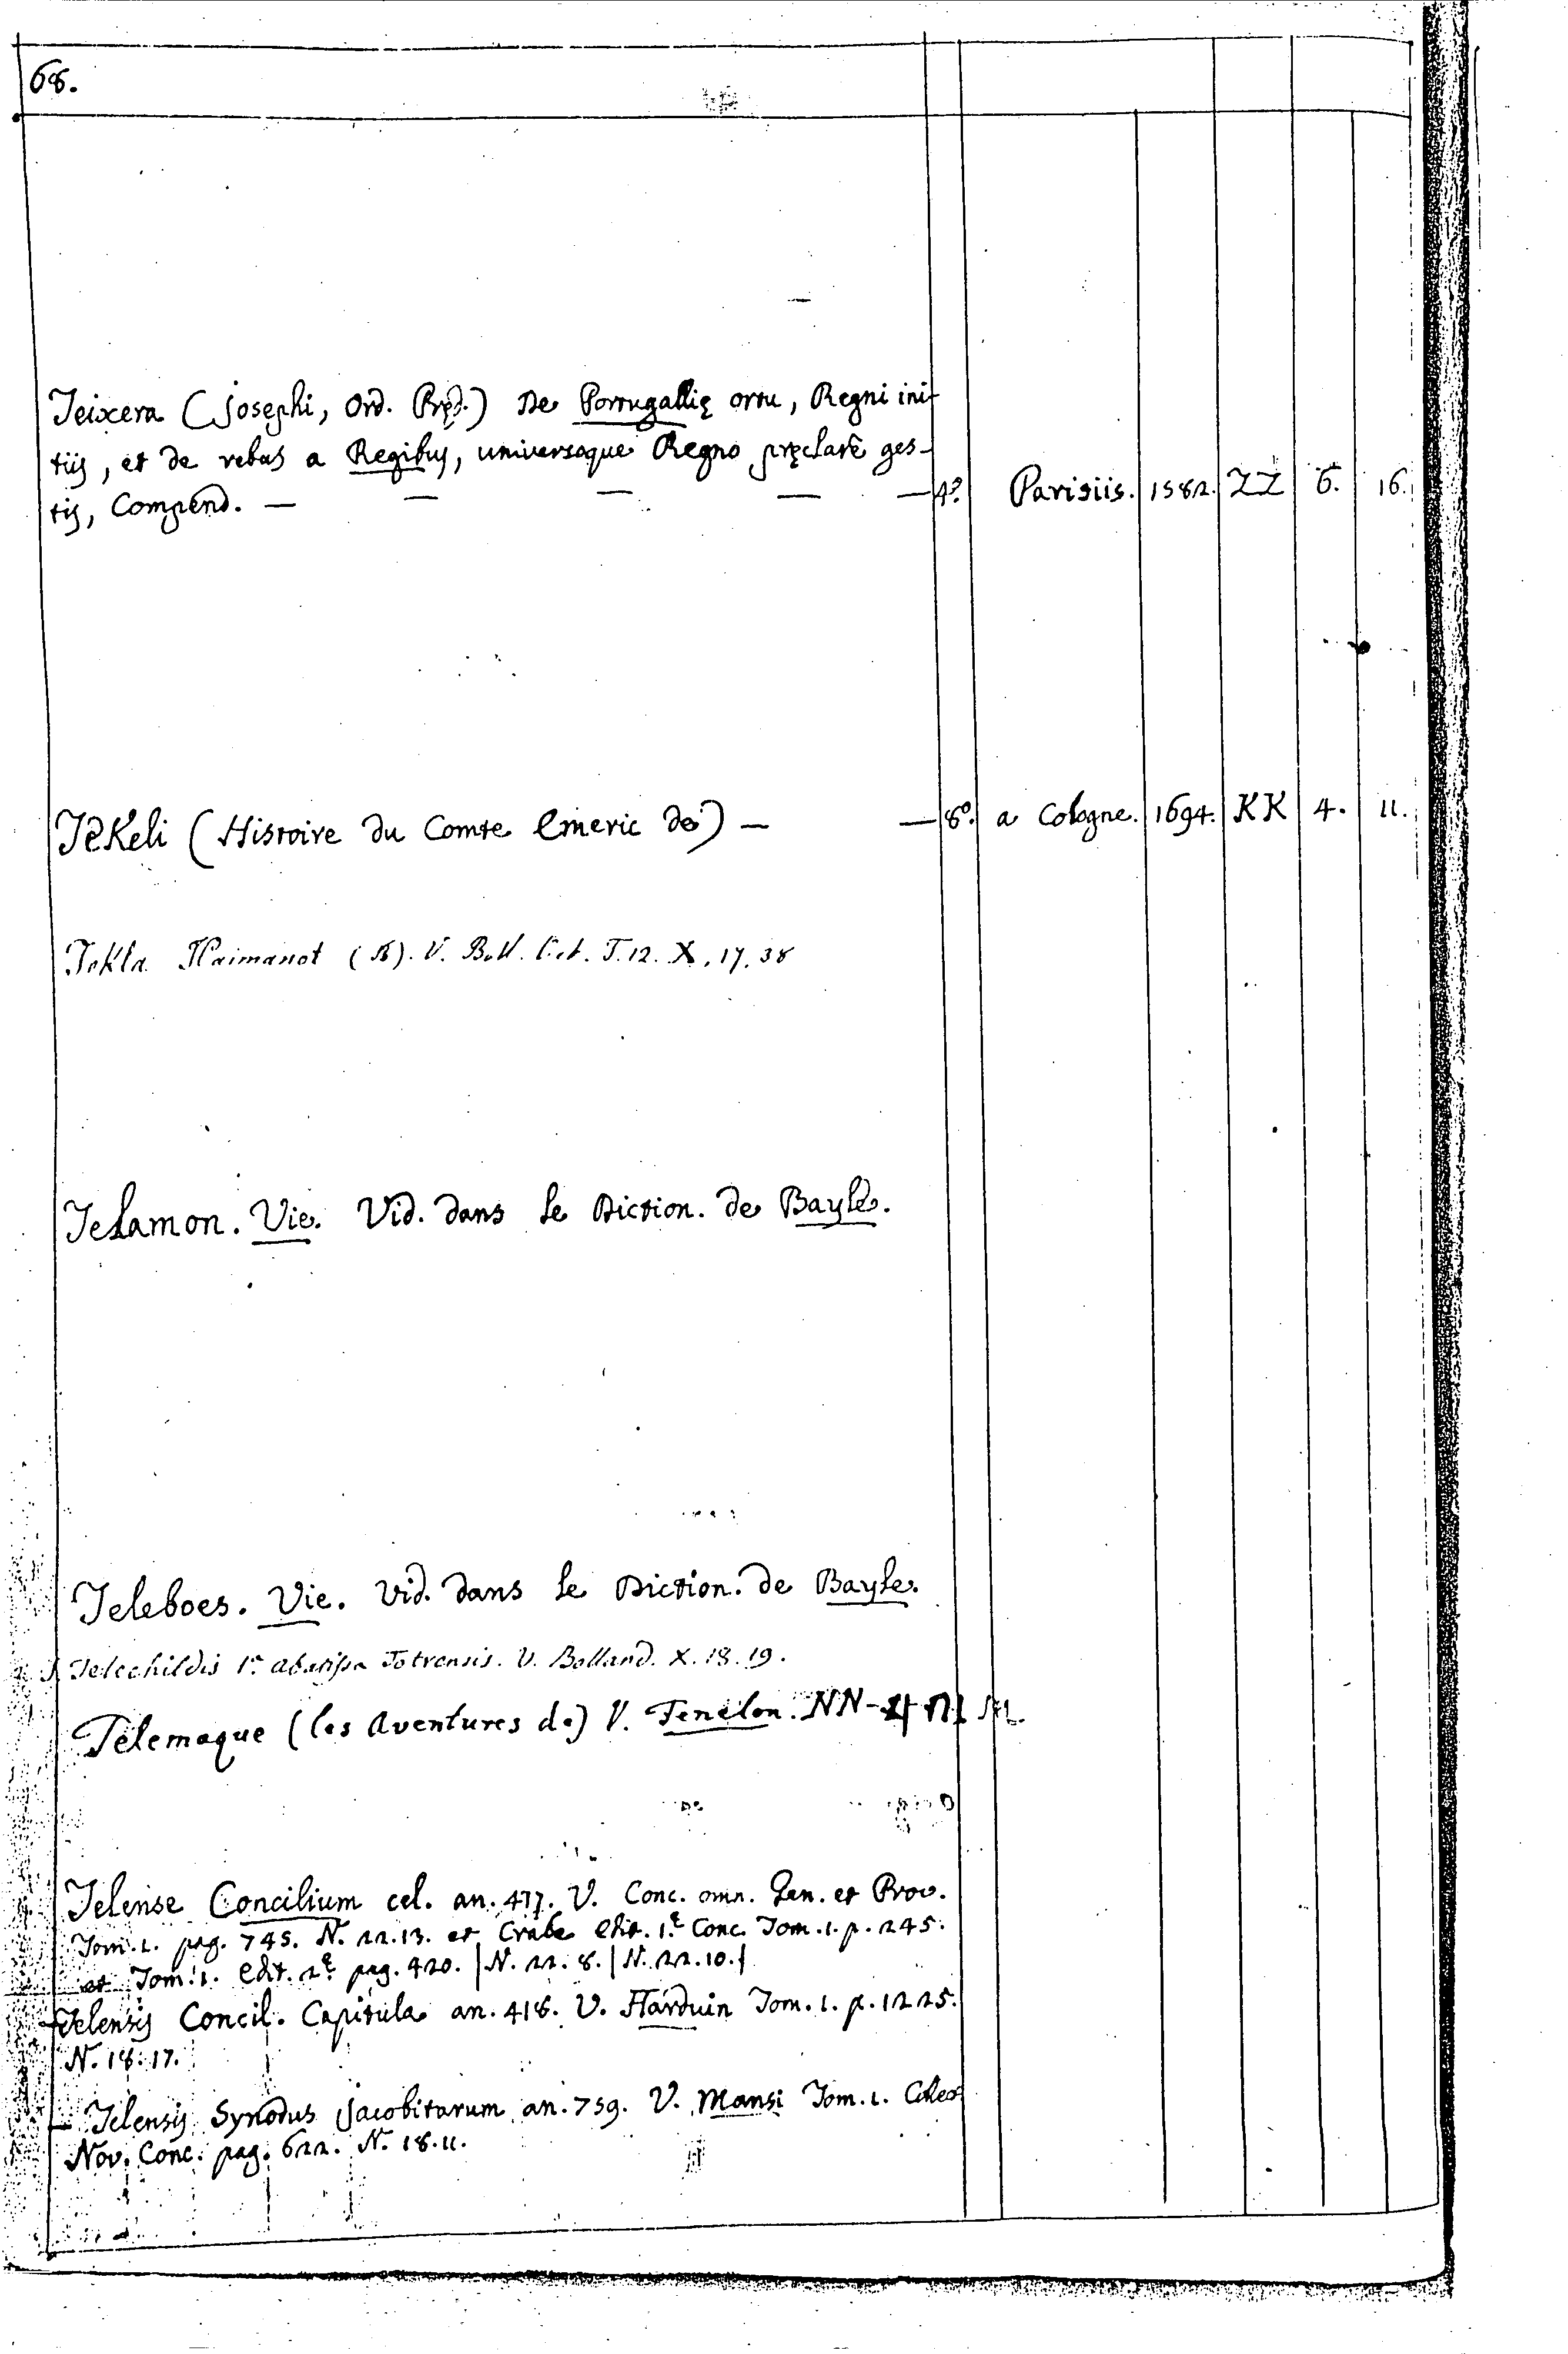 68.
Teixera (Josephi, Ord. Pręd.) De Portugallię ortu, Regni ini-
tiis, et de rebus a Regibus, universoque Regno pręclarè ges-
tis, Compend. — — — — — 4º. Parisiis. 1582. ZZ 6. 16.
Tekeli (Histoire du Comte Emeric de) — — 8º. a Cologne. 1694. KK 4. 11.
Tekla Haimanot (B). V. Boll. Oct. T. 12. X. 17. 38
Telamon. Vie. Vid. dans le Diction. de Bayle.
Teleboes. Vie. Vid. dans le Diction. de Bayle.
Telechildis 1ª abatissa Jotrensis. V. Bolland. X. 18. 19.
Télemaque (les Aventures de) V. Fenélon. NN-
Telense Concilium cel. an. 417. V. Conc. omn. Gen. et Prov.
Tom. 2. pag. 745. N. 22. 13. et Crabe Edit. 1ę Conc. Tom. 1. p. 245.
et Tom. 1. Edit. 2ę pag. 420. | N. 22. 8. | N. 22. 10. |
Telensis Concil. Capitula an. 418. V. Harduin Tom. 1. p. 1225.
N. 18. 17.
— Telensis Synodus Jacobitarum an. 759. V. Mansi Tom. 1.
Nov. Conc. pag. 622. N. 18. 11.